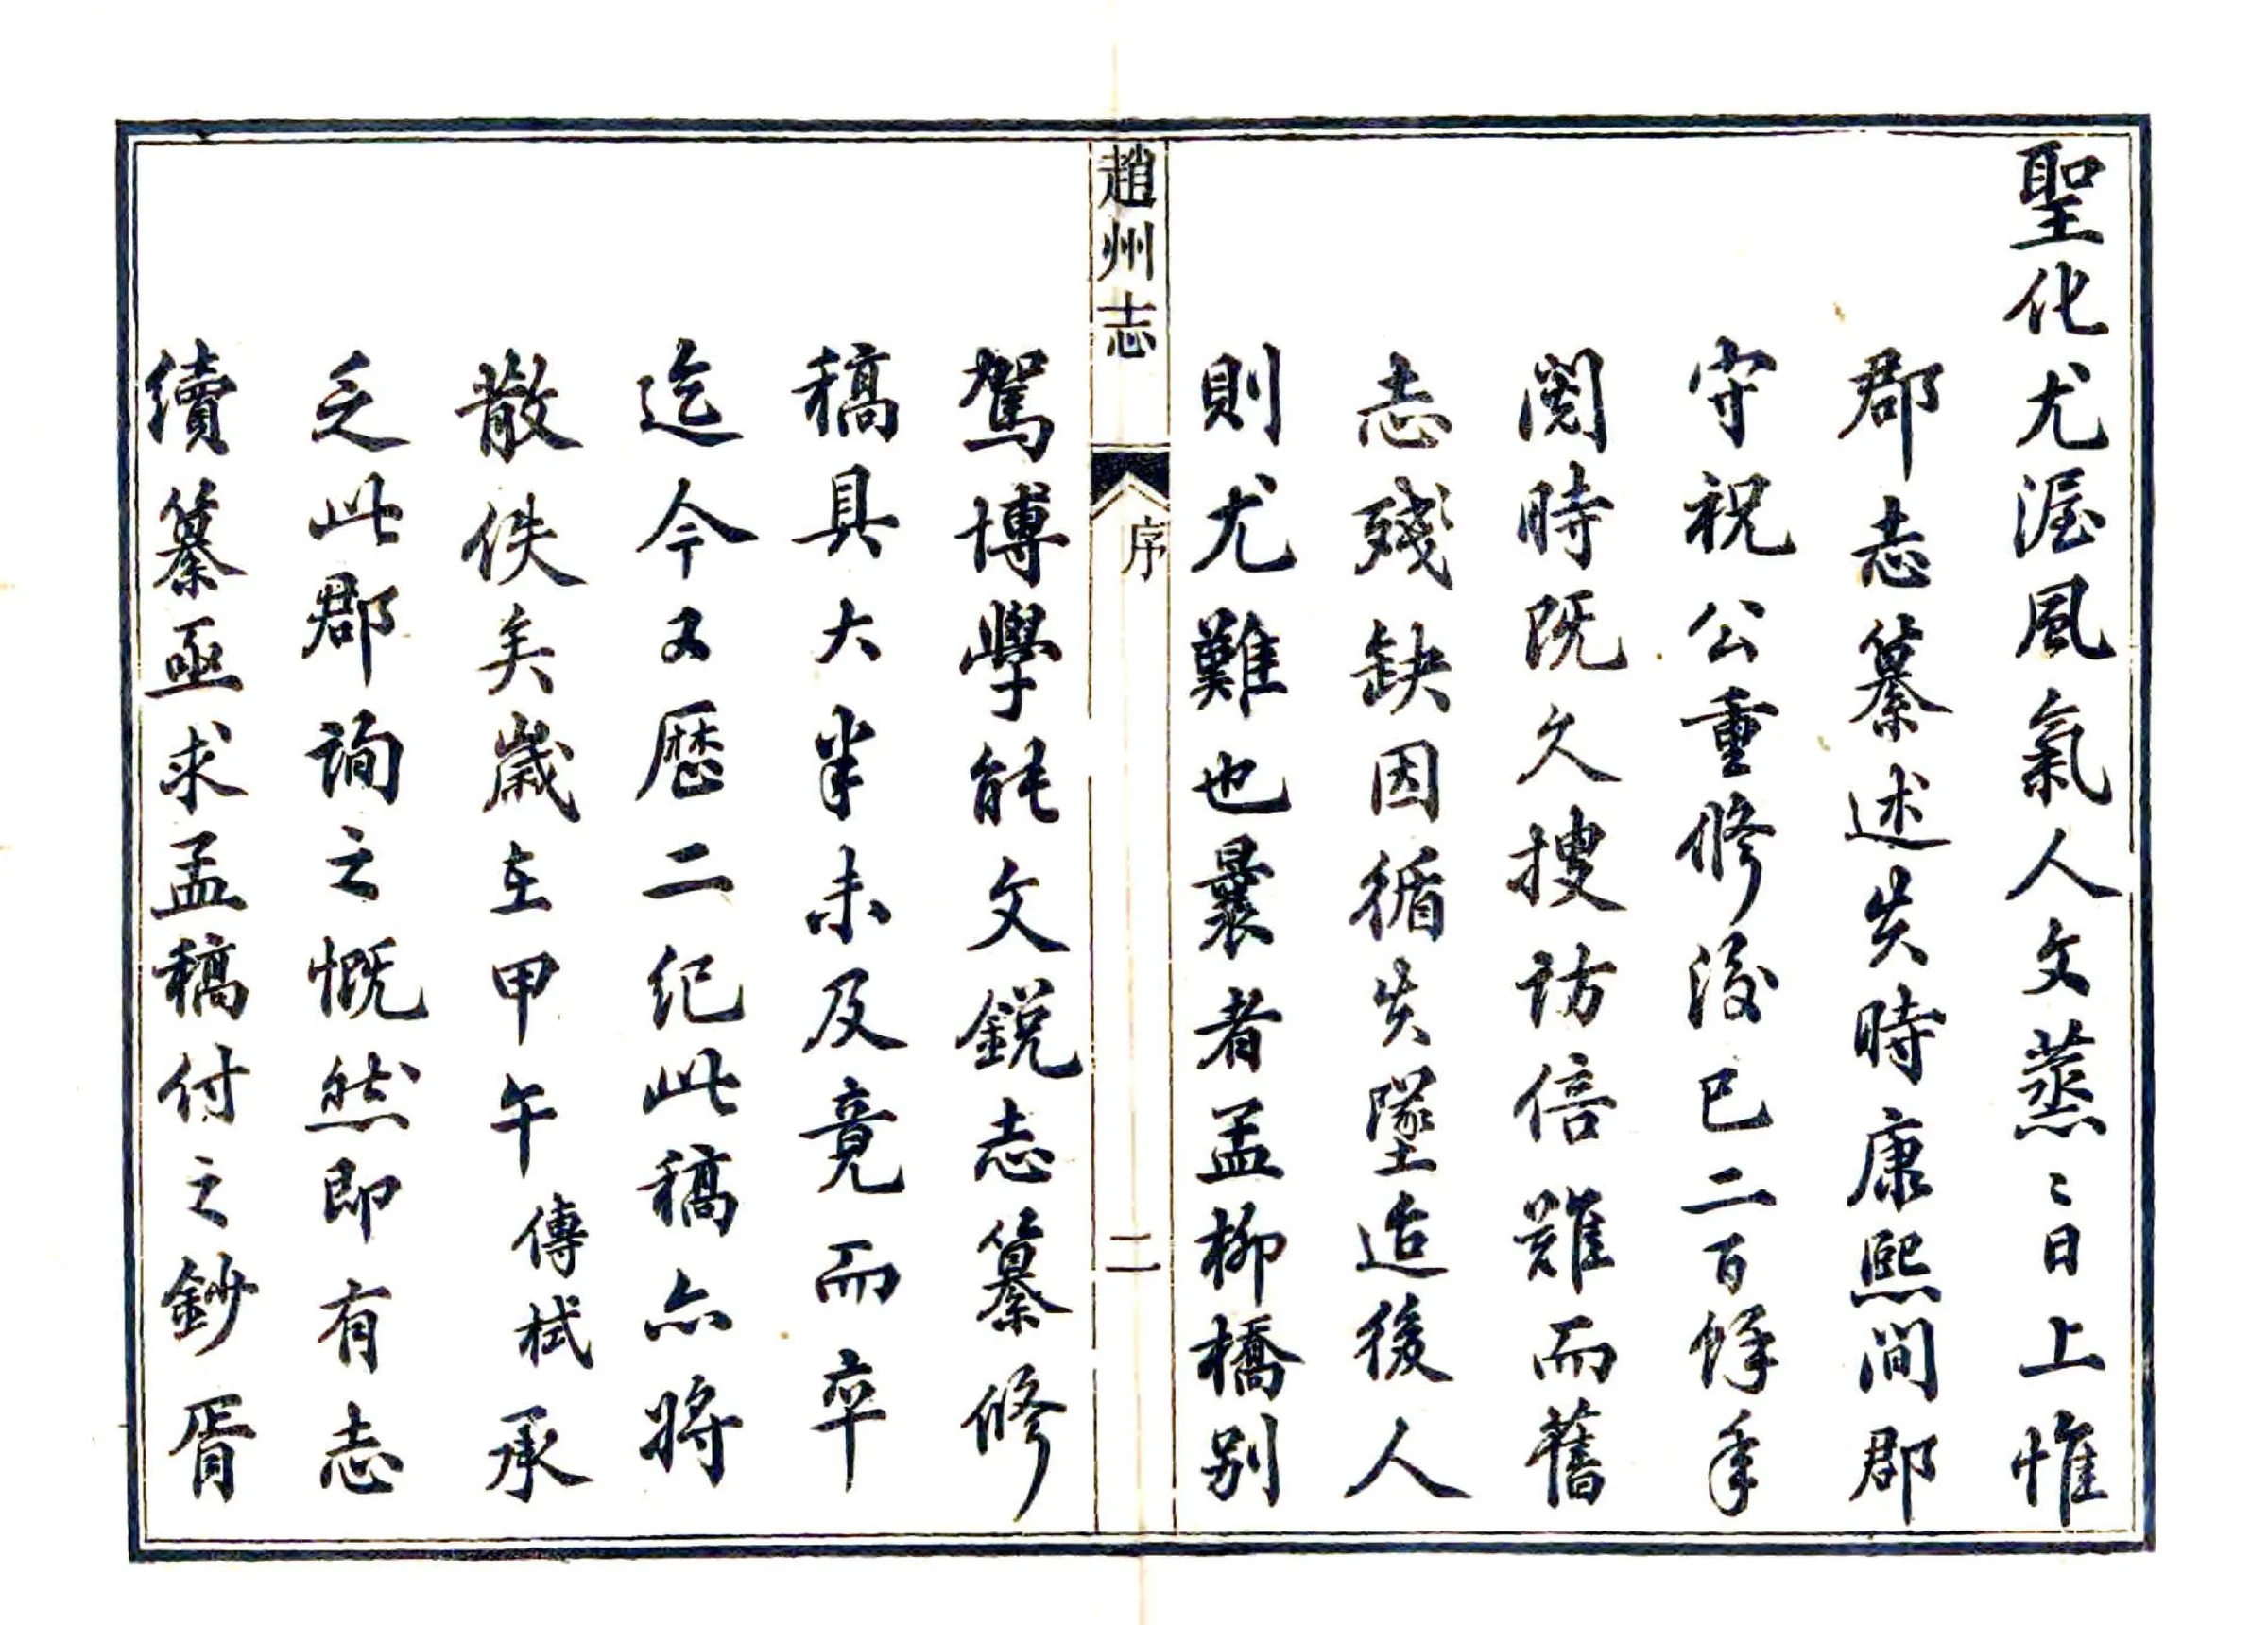 聖化尤渥風氣人文蒸〻日上惟
郡志纂述失時康熙間郡
守祝公重修後已二百餘年
閱時既久搜訪倍難而舊
志殘缺因循失墜迨後人
則尤難也曩者孟柳橋別
趙州志
序
二
駕博學能文銳志纂修
稿具大半未及竟而卒
迄今又歷二紀此稿亦將
散佚矣歲在甲午傳栻承
乏此郡詢之慨然即有志
續纂亟求孟稿付之鈔胥